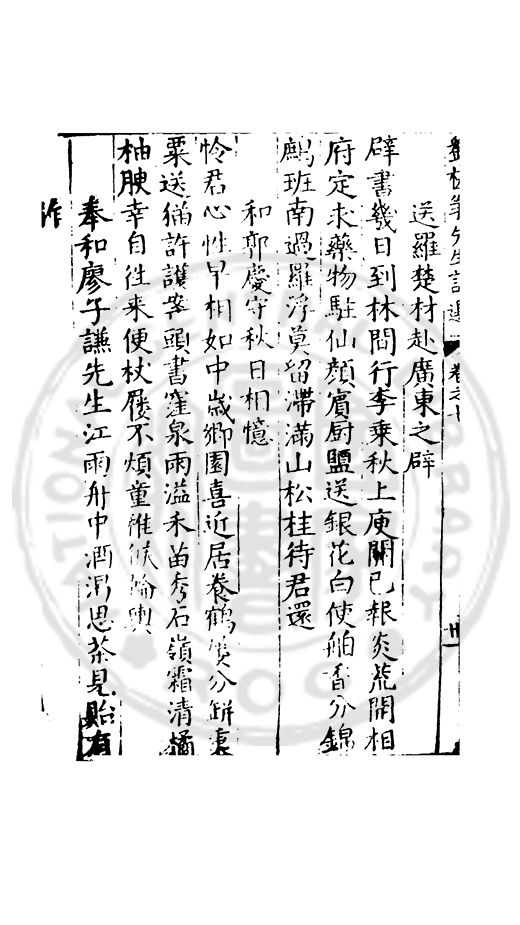 卷之十
送羅楚材赴廣東之辟
辟書幾日到林間行李乘秋上庾關已報炎荒開相
府定求藥物駐仙顏賓厨鹽送銀花白使舶香分錦
鷓班南過羅浮莫留滯滿山松桂待君還
和郭慶守秋日相憶
怜君心性早相如中歲鄉園喜近居養鶴分餅
粟送猫許護寄頭書窪泉雨溢禾苗秀石嶺霜清橘
柚腴幸自往来便杖屨不煩童稚候輿
奉和廖子謙先生江雨舟中酒渴思茶見貽有
作